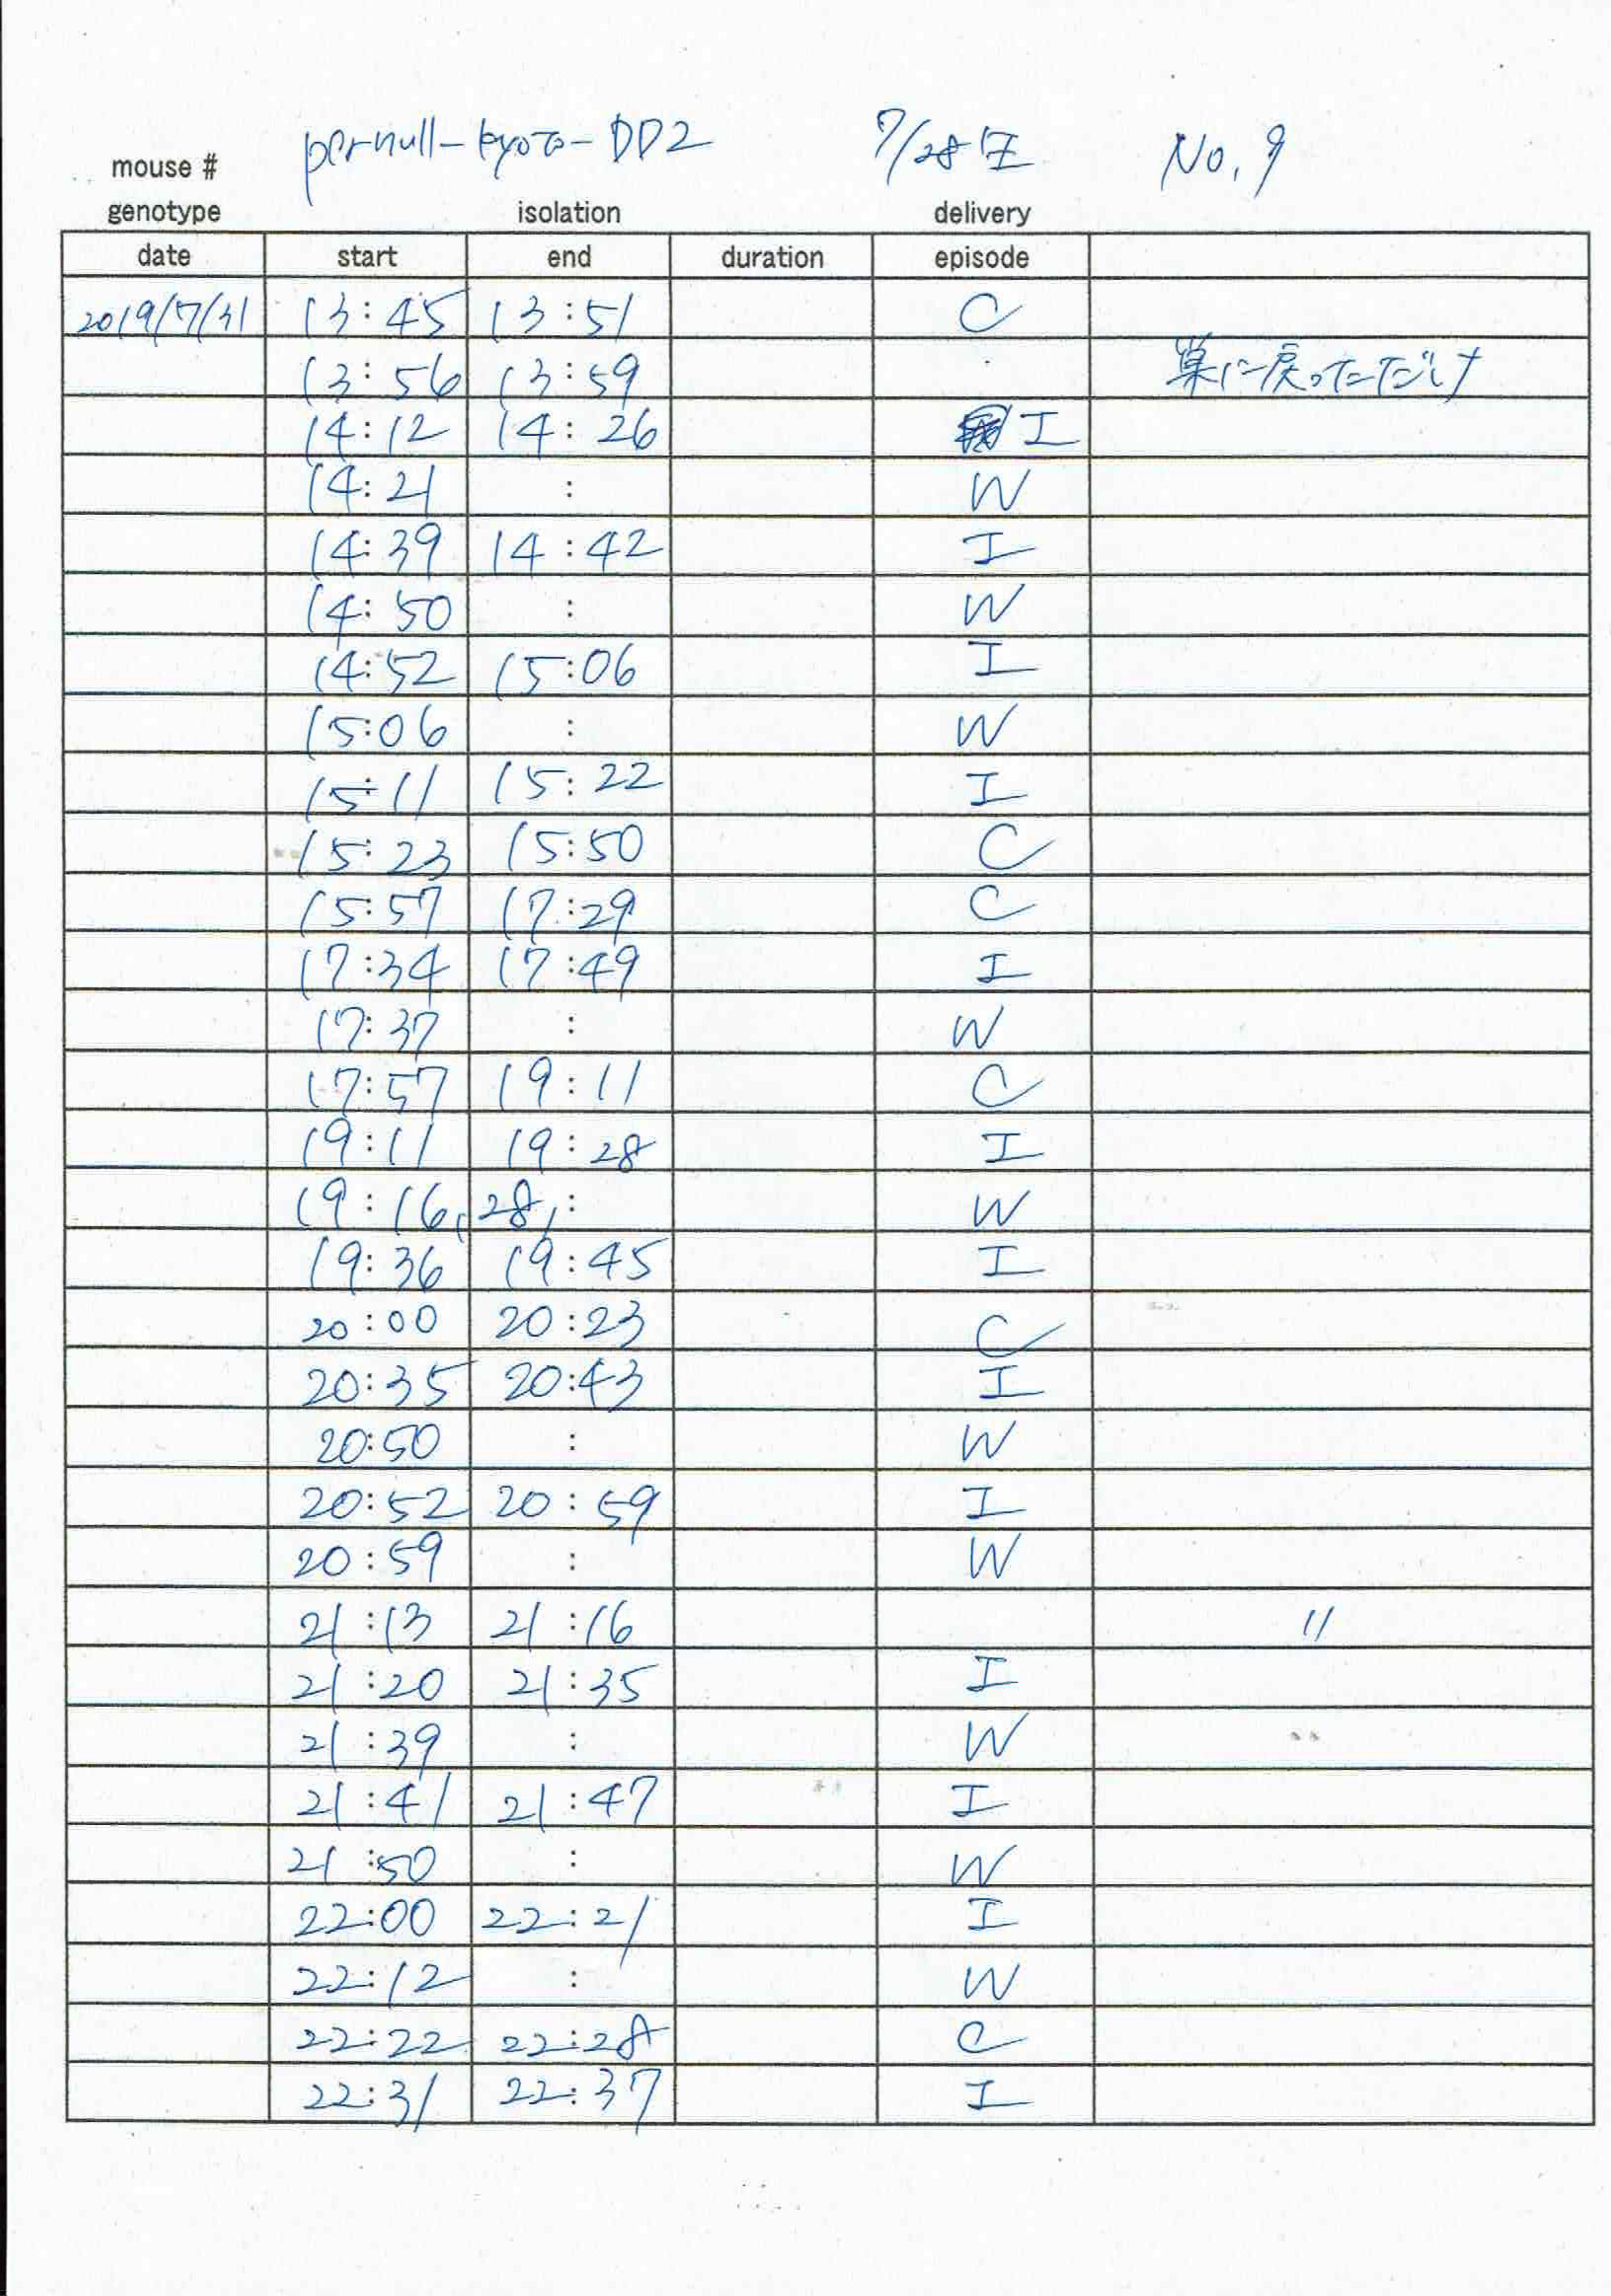 mouse # pernull-kyoto-DD2 7/28 No. 9
genotype isolation delivery
date start end duration episode
2019/7/31 13:45 13:51 C
13:56 13:59 巣に戻っただけ
14:12 14:26 I
14:21 : W
14:39 14:42 I
14:50 : W
14:52 15:06 I
15:06 : W
15:11 15:22 I
15:23 15:50 C
15:57 17:29 C
17:34 17:49 I
17:37 : W
17:57 19:11 C
19:11 19:28 I
19:16, 28, : W
19:36 19:45 I
20:00 20:23 C
20:35 20:43 I
20:50 : W
20:52 20:59 I
20:59 : W
21:13 21:16 〃
21:20 21:35 I
21:39 : W
21:41 21:47 I
21:50 : W
22:00 22:21 I
22:12 : W
22:22 22:28 C
22:31 22:37 I